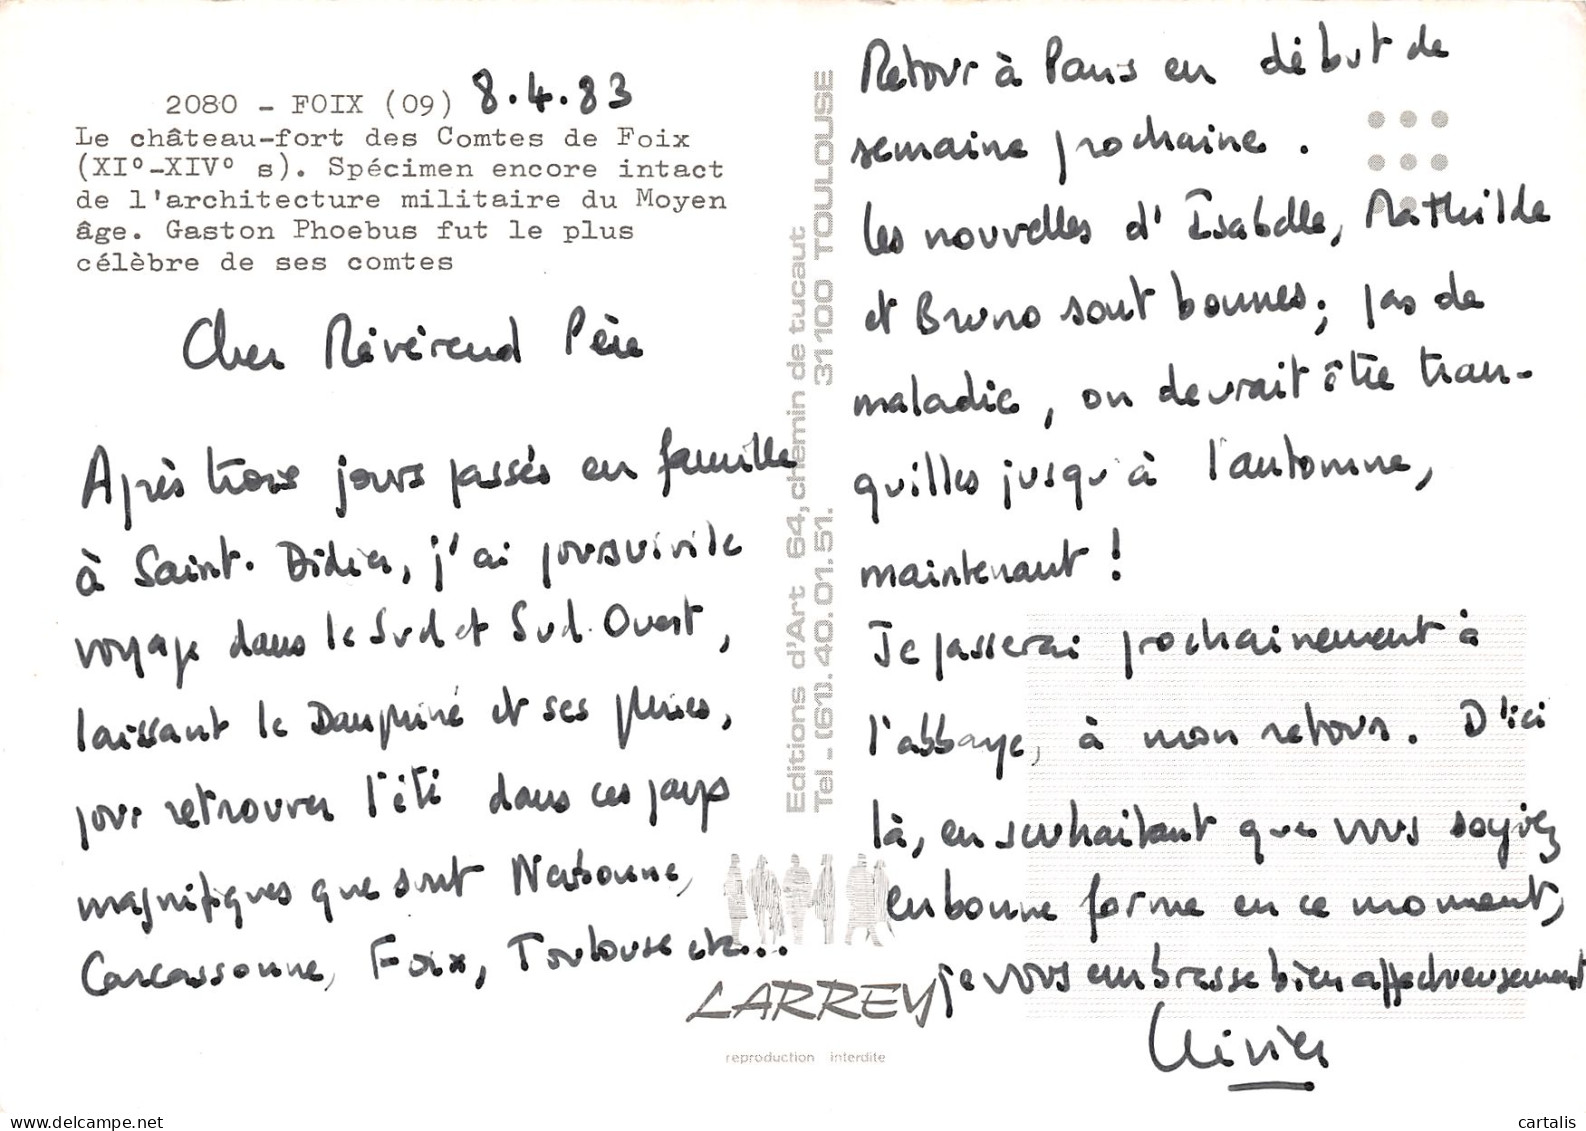 2080 - FOIX (09) 8.4.83
Le château-fort des Comtes de Foix
(XI°-XIV° s). Spécimen encore intact
de l'architecture militaire du Moyen
âge. Gaston Phoebus fut le plus
célèbre de ses comtes
Cher Révérend Père
Après trois jours passés en famille
à Saint-Didier, j'ai poursuivi le
voyage dans le Sud et Sud-Ouest,
laissant le Dauphiné et ses pluies,
pour retrouver l'été dans ces pays
magnifiques que sont Narbonne,
Carcassonne, Foix, Toulouse etc...
Editions d'Art 64, chemin de tucaut
Tel - (61). 40.01.51. 31100 TOULOUSE
LARREY
reproduction interdite
Retour à Paris en début de
semaine prochaine.
les nouvelles d'Isabelle, Mathilde
et Bruno sont bonnes; pas de
maladie, on devrait être tran-
quilles jusqu'à l'automne,
maintenant !
Je passerai prochainement à
l'abbaye, à mon retour. D'ici
là, en souhaitant que vous soyiez
en bonne forme en ce moment,
je vous embrasse bien affectueusement
Olivier
cartalis
www.delcampe.net